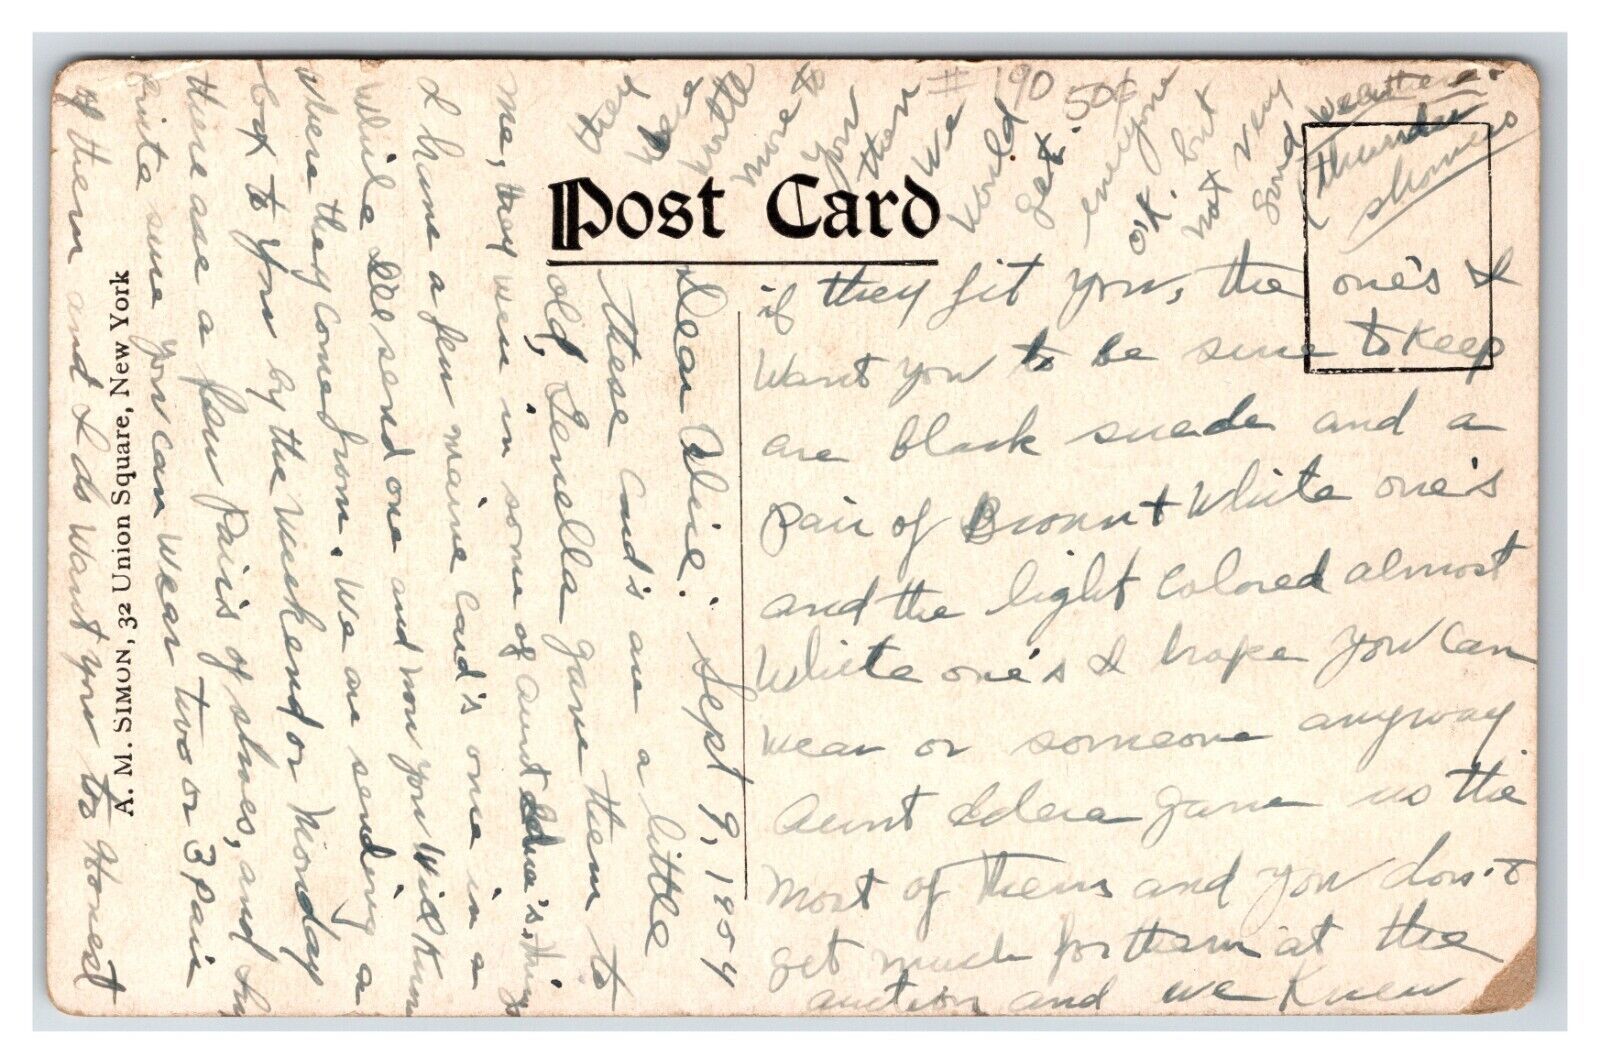 Post Card
A. M. SIMON, 32 Union Square, New York
Dear Alice: Sept 9, 1954
These Card's are a little
old, Genella gave them to
me, they were in some of Aunt Idea's things
I have a few maine Card's one in a
While I'll send one and now you Will know
Where they Comed from. We are sending a
box to you by the Weekend or Monday
there are a few Pair's of shoes, and I'm
quite sure you can wear two or 3 pair
of them and I do Want you to Honest
if they fit you, the one's I
Want you to be sure to Keep
are black suede and a
pair of Brown + White one's
and the light Colored almost
White one's I hope you Can
wear or someone anyway
Aunt Idea gave us the
most of them and you don't
get much for them at the
auction and we Knew
they
were
worth
more to
you
then
we
would
get.
everyone
O'K. but
not very
good weather
(thunder
showers
# 190
50¢